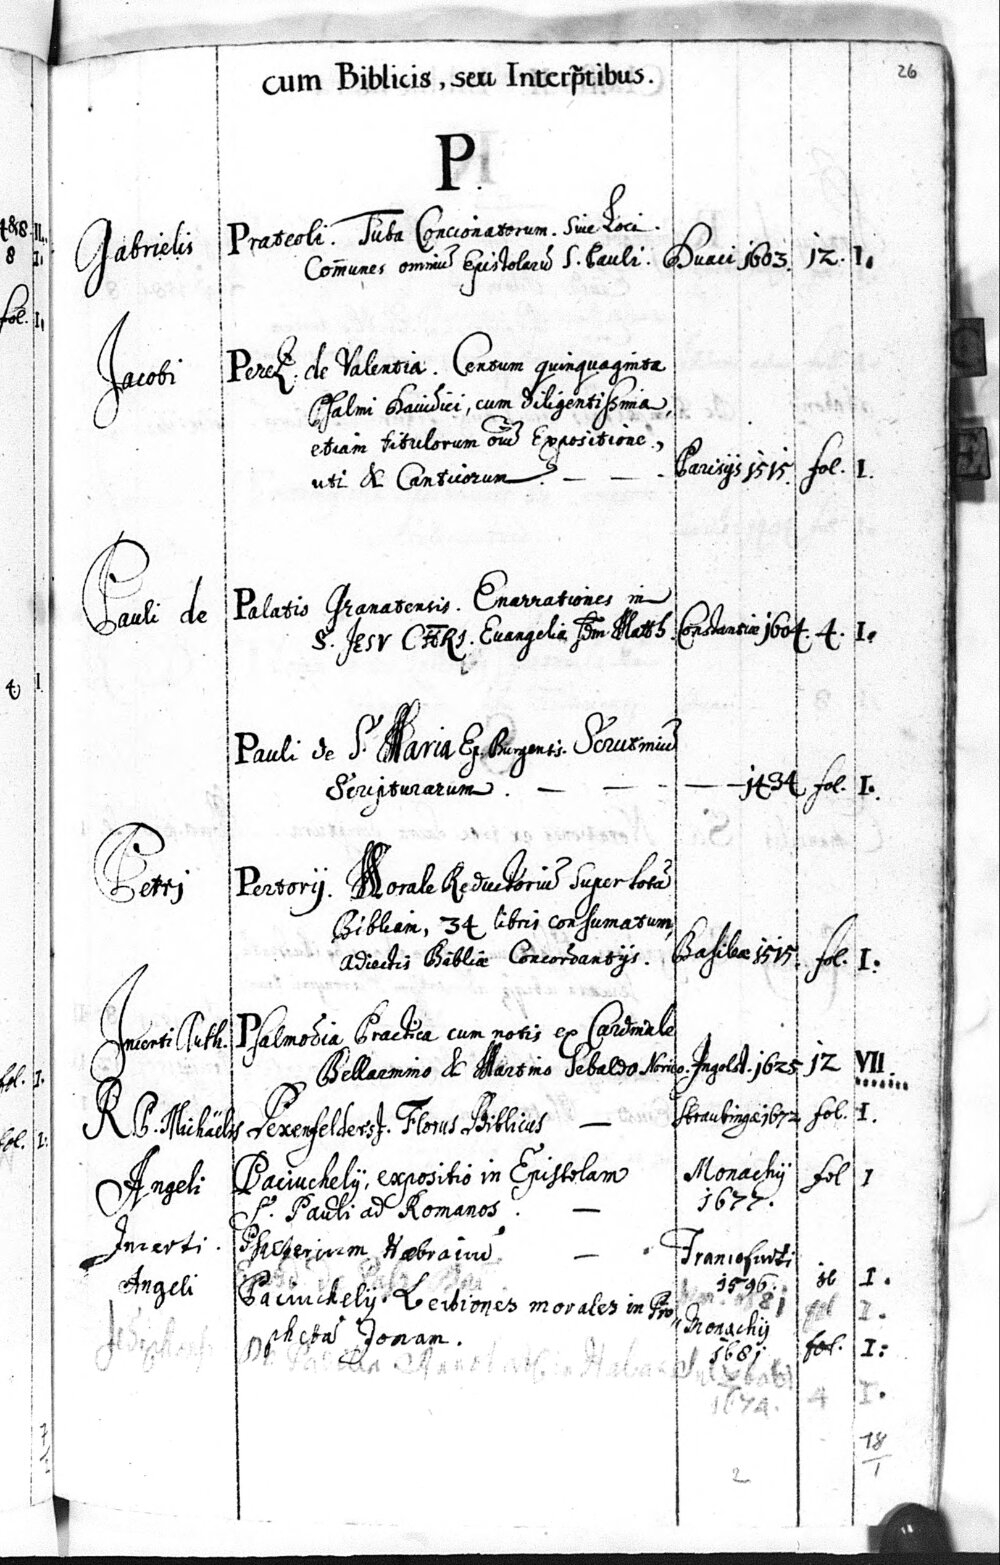 26
cum Biblicis, seu Interp̃tibus.
P.
Gabrielis Prateoli. Tuba Concionatorum. Siue Loci
Com̄unes omniū Epistolarū S. Pauli. Duaci 1603. 12. I.
Jacobi Perez. de Valentia. Centum quinquaginta
Psalmi Dauidici, cum diligentissima,
etiam titulorum oīu Expositione,
uti & Canticorum. Parisijs 1515. fol. I.
Pauli de Palatio Granatensis. Enarrationes in
S. JESV CHRI. Euangeliā s̄m Matth. Constantiæ 1604. 4. I.
Pauli de S. Maria Ep. Burgensis. Scrutiniū
Scripturarum. 1434 fol. I.
Petrj Pertorij. Morale Reductoriū super totā
Bibliam, 34 libris consumatum,
adiectis Bibliæ Concordantijs. Basileæ 1515. fol. I.
Incerti Auth. Psalmodia Practica cum notis ex Cardinale
Bellarmino & Martino Sebaldo Norico. Ingolst. 1625 12 VII.
R. P. Michaëlis Pexenfelder S.J. Florus Biblicus — Straubingæ 1672 fol. I.
Angeli Paciuchelij, expositio in Epistolam Monachij fol I
S. Pauli ad Romanos. — 1677.
Incerti. Psalterium Hæbraicū — Francofurti
1596. I.
Angeli Paciuchelij. Lectiones morales in Pro„ Monachij
phetā Jonam. 1681 fol. I.
1674. 4 I.
18
1
2